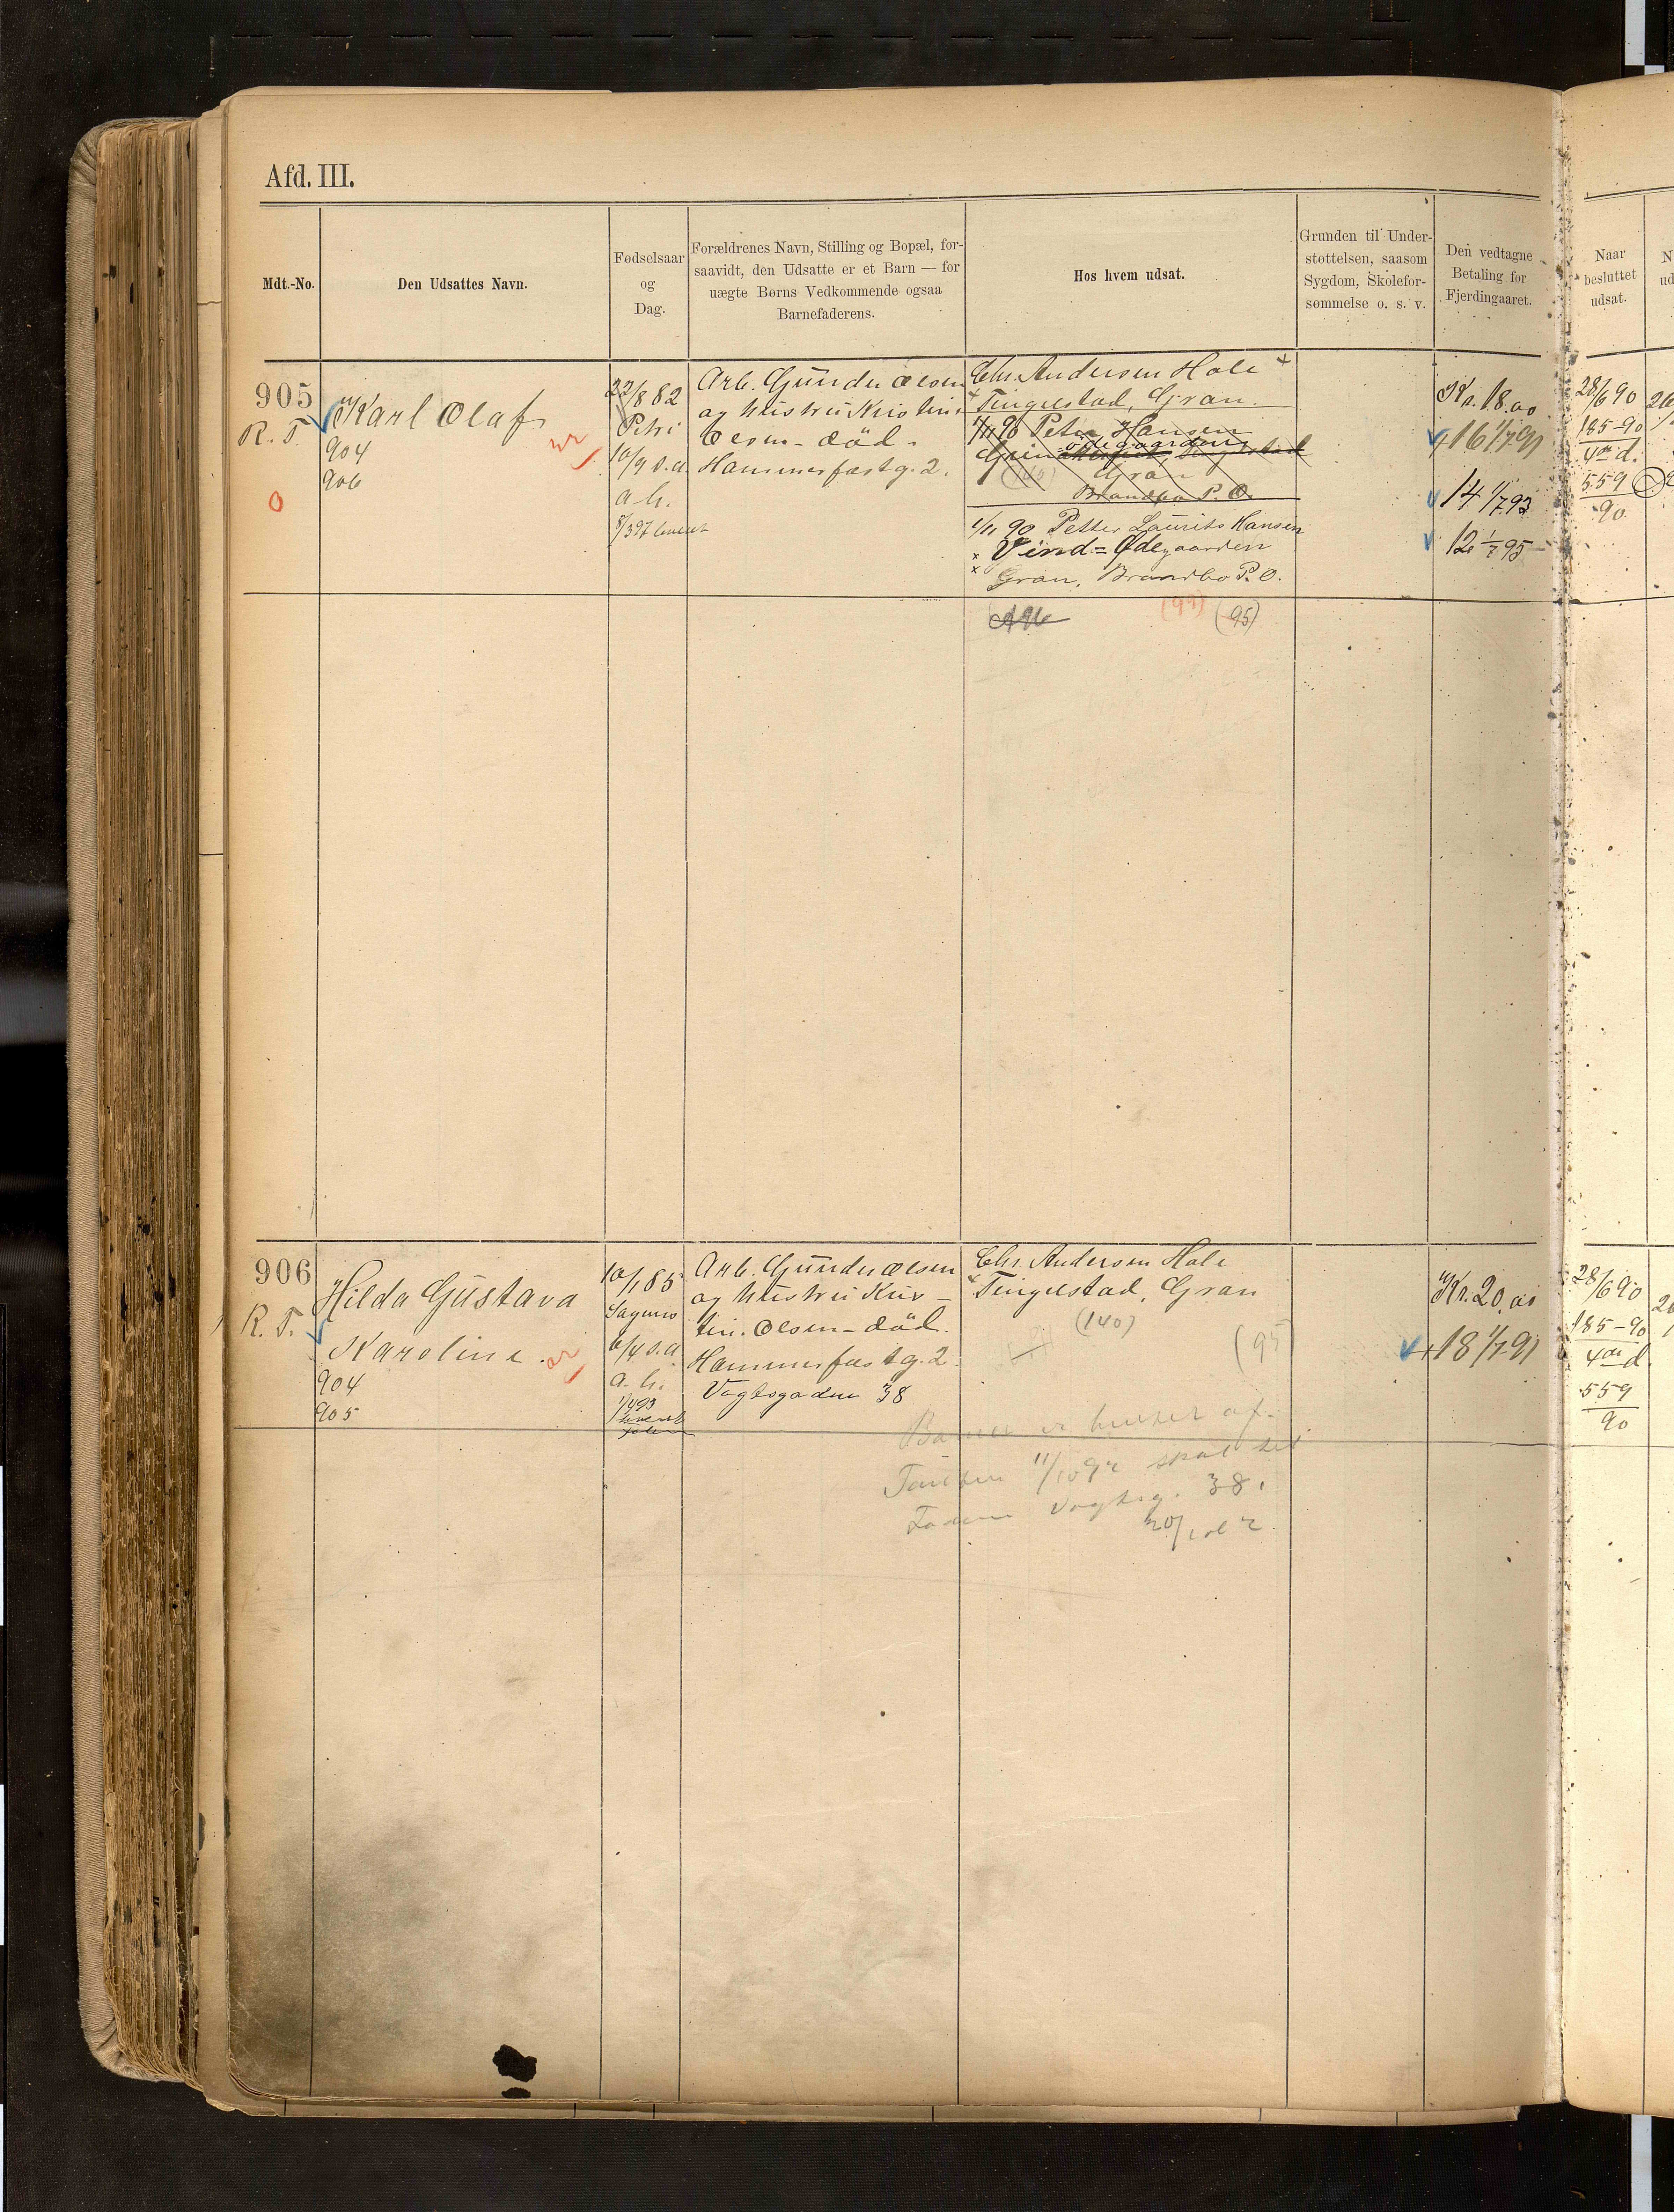 Afd. III.
Mdt.-No.
Den Udsattes Navn.
Fødselsaar
og
Dag.
Forældrenes Navn, Stilling og Bopæl, for-
saavidt, den Udsatte er et Barn — for
uægte Børns Vedkommende ogsaa
Barnefaderens.
Hos hvem udsat.
Grunden til Under-
støttelsen, saasom
Sygdom, Skolefor-
sømmelse o. s. v.
Den vedtagne
Betaling for
Fjerdingaaret.
Naar
besluttet
udsat.
905
R. T.
Karl Olaf
904
906
22/8 82
Petri
10/9 s.a.
a. h.
Arb. Gunder Olsen
og Hustru Kristine
Olsen - död.
Hammerfestg. 2.
Chr. Andersen Hole
Tingelstad, Gran.
1/11 90 Peter Hansen
Ødegaarden
Gran
Brandbo P. O.
1/11 90 Petter Laurits Hansen
Vind = Ødegaarden
Gran, Brandbo P. O.
(95)
Kr. 18.00
16 1/7 91
14 1/7 93
12 1/7 95
28/6 90
185-90
559
90
906
R. T.
Hilda Gustava
Karoline.
904
905
10/1 85
6/4 s.a.
a. h.
Arb. Gunder Olsen
og Hustru Kris-
tin. Olsen - död.
Hammerfestg. 2.
Vogtsgaden 38
Chr. Andersen Hole
Tingelstad, Gran
(140)
(95
Kr. 20.00
18 1/7 91
28/6 90
185-90
559
90
Barnet er hentet af
Vogtsg. 38.